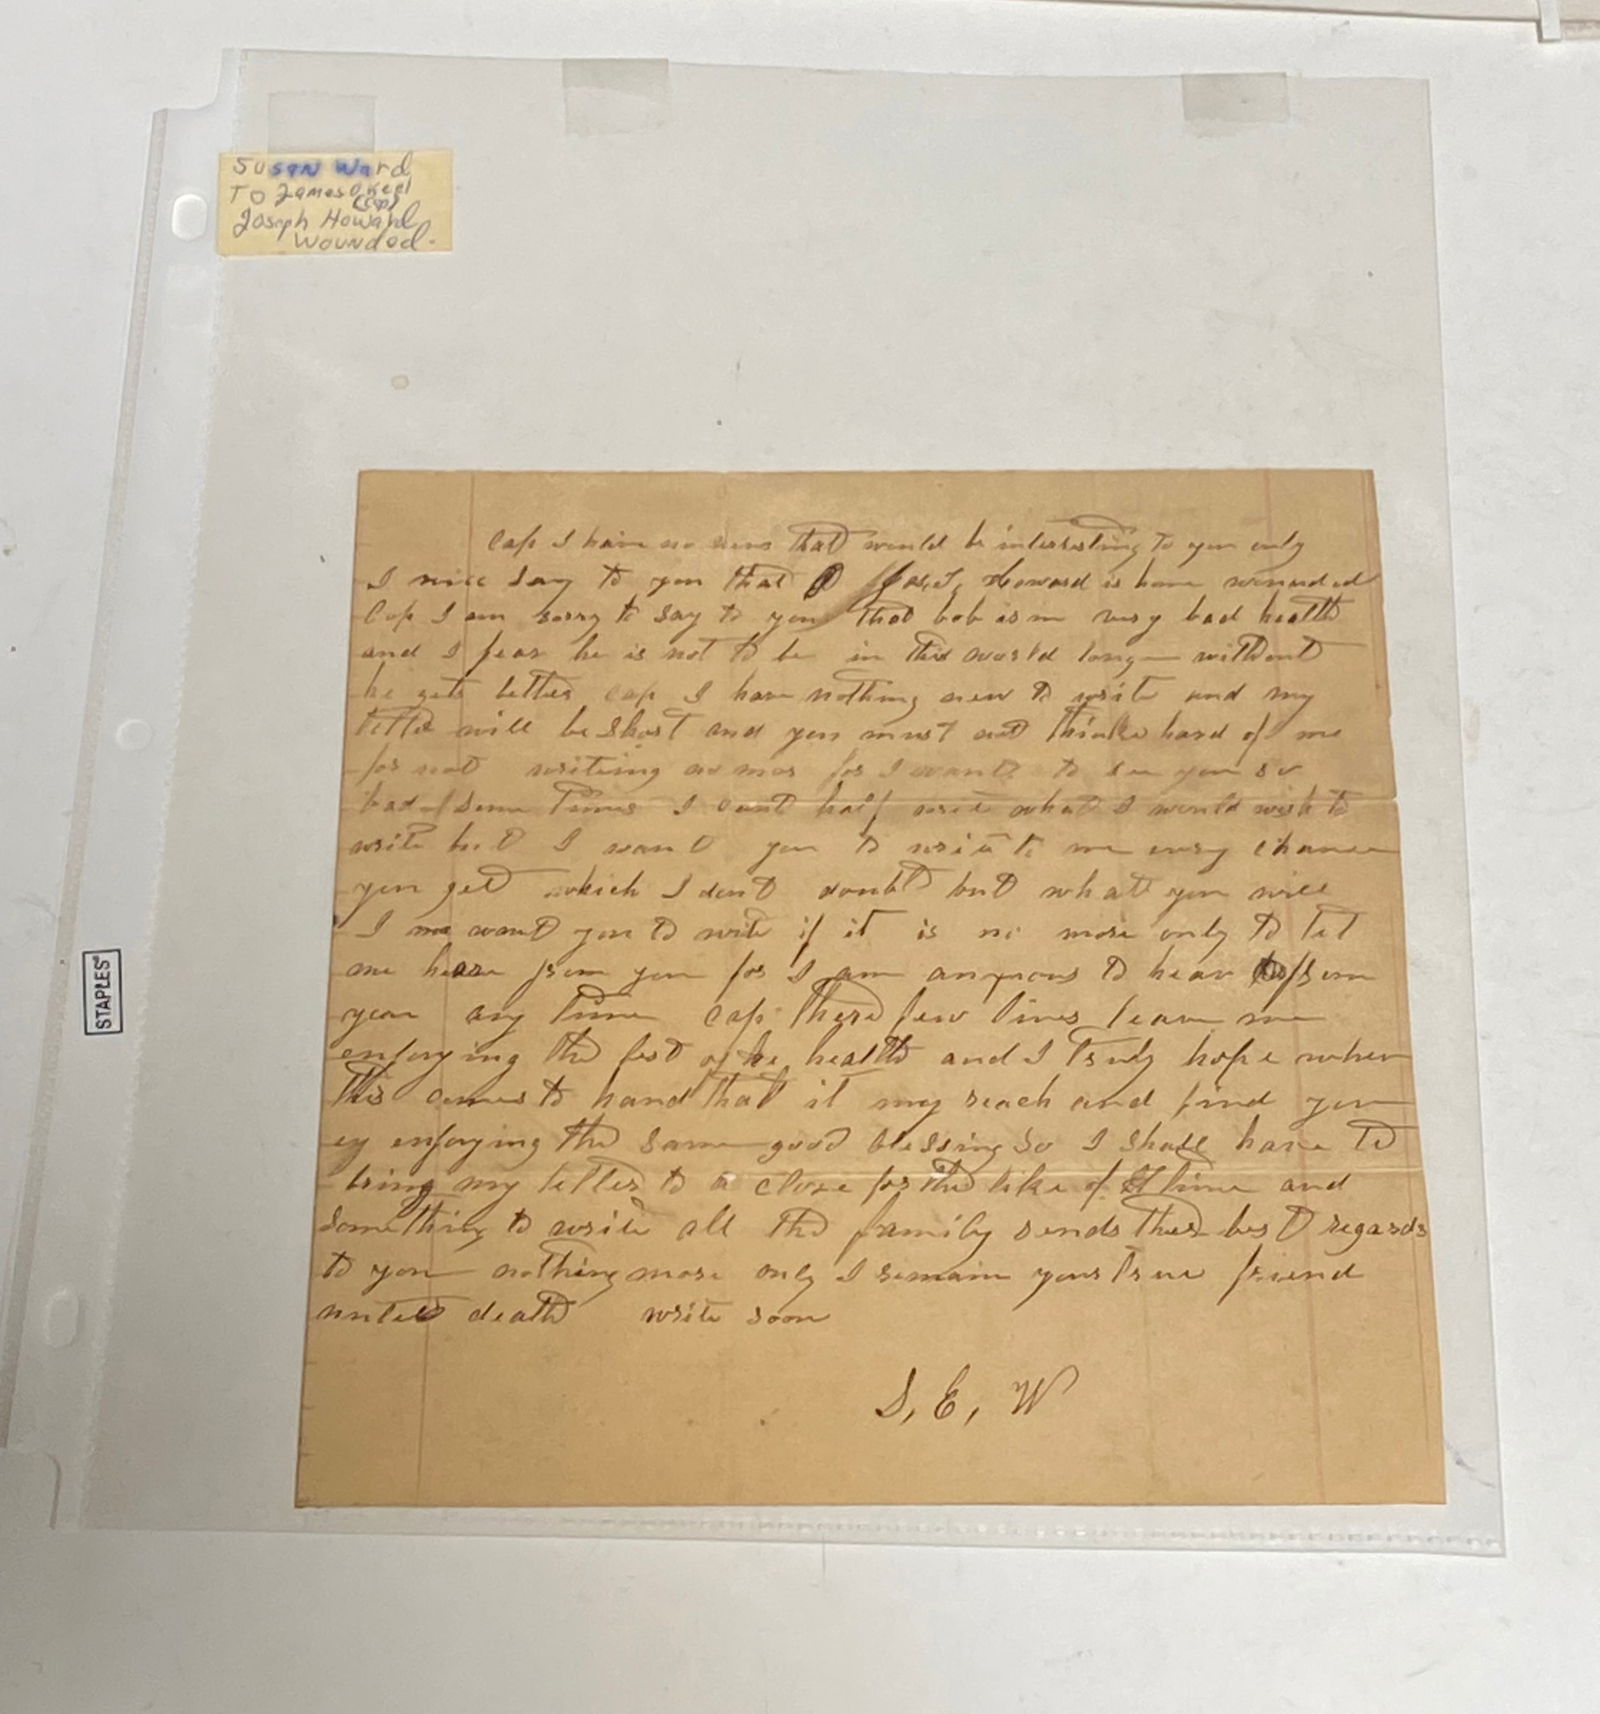 Susan Ward
To James OKeel
(Cap)
Joseph Howard
Wounded.
STAPLES
Cap I have no news that would be interesting to you only
I will say to you that Howard is home wounded
Cap I am sorry to say to you that bob is in very bad health
and I fear he is not to be in this world long without
he gets better Cap I have nothing new to write and my
letter will be short and you must not thinke hard of me
for not writing no mor for I want to see you so
bad some times I cant half write what I would wish to
write but I want you to write to me evry chance
you get which I dont doubt but what you will
I want you to write if it is no more only to let
me hear from you for I am anxious to hear from
you any time Cap these few lines leave me
enjoying the best of health and I truly hope when
this comes to hand that it may reach and find you
enjoying the same good blessing So I shall have to
bring my letter to a close for the like of time and
something to write all the family sends their best regards
to you nothing more only I remain your true friend
untill death write soon
S, E, W